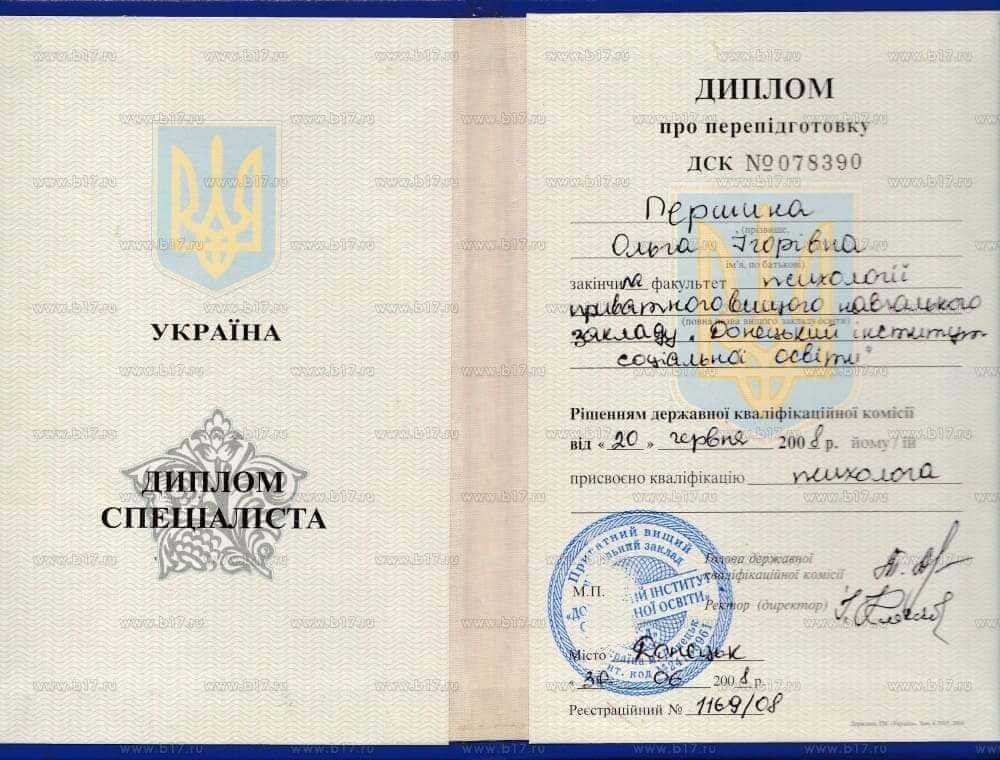 УКРАЇНА
ДИПЛОМ
СПЕЦІАЛІСТА
ДИПЛОМ
про перепідготовку
ДСК №078390
Першина
(прізвище,
Ольга Ігорівна
ім'я, по батькові)
закінчила факультет психології
приватного вищого навчального
(повна назва вищого закладу освіти)
закладу „Донецький інститут
соціальної освіти"
Рішенням державної кваліфікаційної комісії
від «20» червня 2008 р. йому / їй
присвоєно кваліфікацію психолога
Приватний вищий
заклад
ІНСТИТУТ
ОСВІТИ»
М.П.
Голова державної
кваліфікаційної комісії
Ректор (директор)
Місто Донецьк
«30» 06 2008 р.
Реєстраційний № 1169/08
www.b17.ru